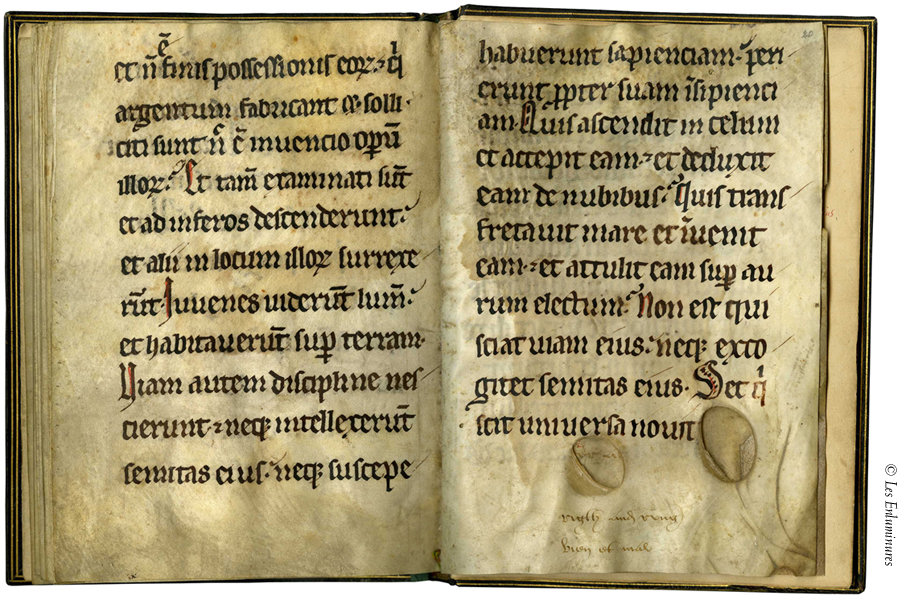 et n̄ ē finis possessionis eoꝝ. ⁊ q̇
argentum fabricant & solli
citi sunt n̄ ē inuencio opeꝝ̄
illoꝝ. Et tam̄ exaīnati sūt
et ad inferos descenderunt.
et alii in locum illoꝝ surrexe
rūt Iuuenes uiderūt lum̄.
et habitauerūt suꝑ terram.
Uiam autem discipline nes
cierunt. neqꝫ intellexerūt
semitas eius. neqꝫ suscepe
20
habuerunt sapienciam. ꝑeri
erunt ꝓpter suam īsipienci
am. Quis ascendit in celum
et accepit eam. ⁊ et deduxit
eam de nubibus. Quis trans
fretauit mare et īuenit
eam. ⁊ et attulit eam suꝑ au
rum electum. Non est qui
sciat uiam eius. neqꝫ exco
gitet semitas eius. Set q̇
scit uniuersa nouit
rigth and rong
bien et mal
© Les Enluminures